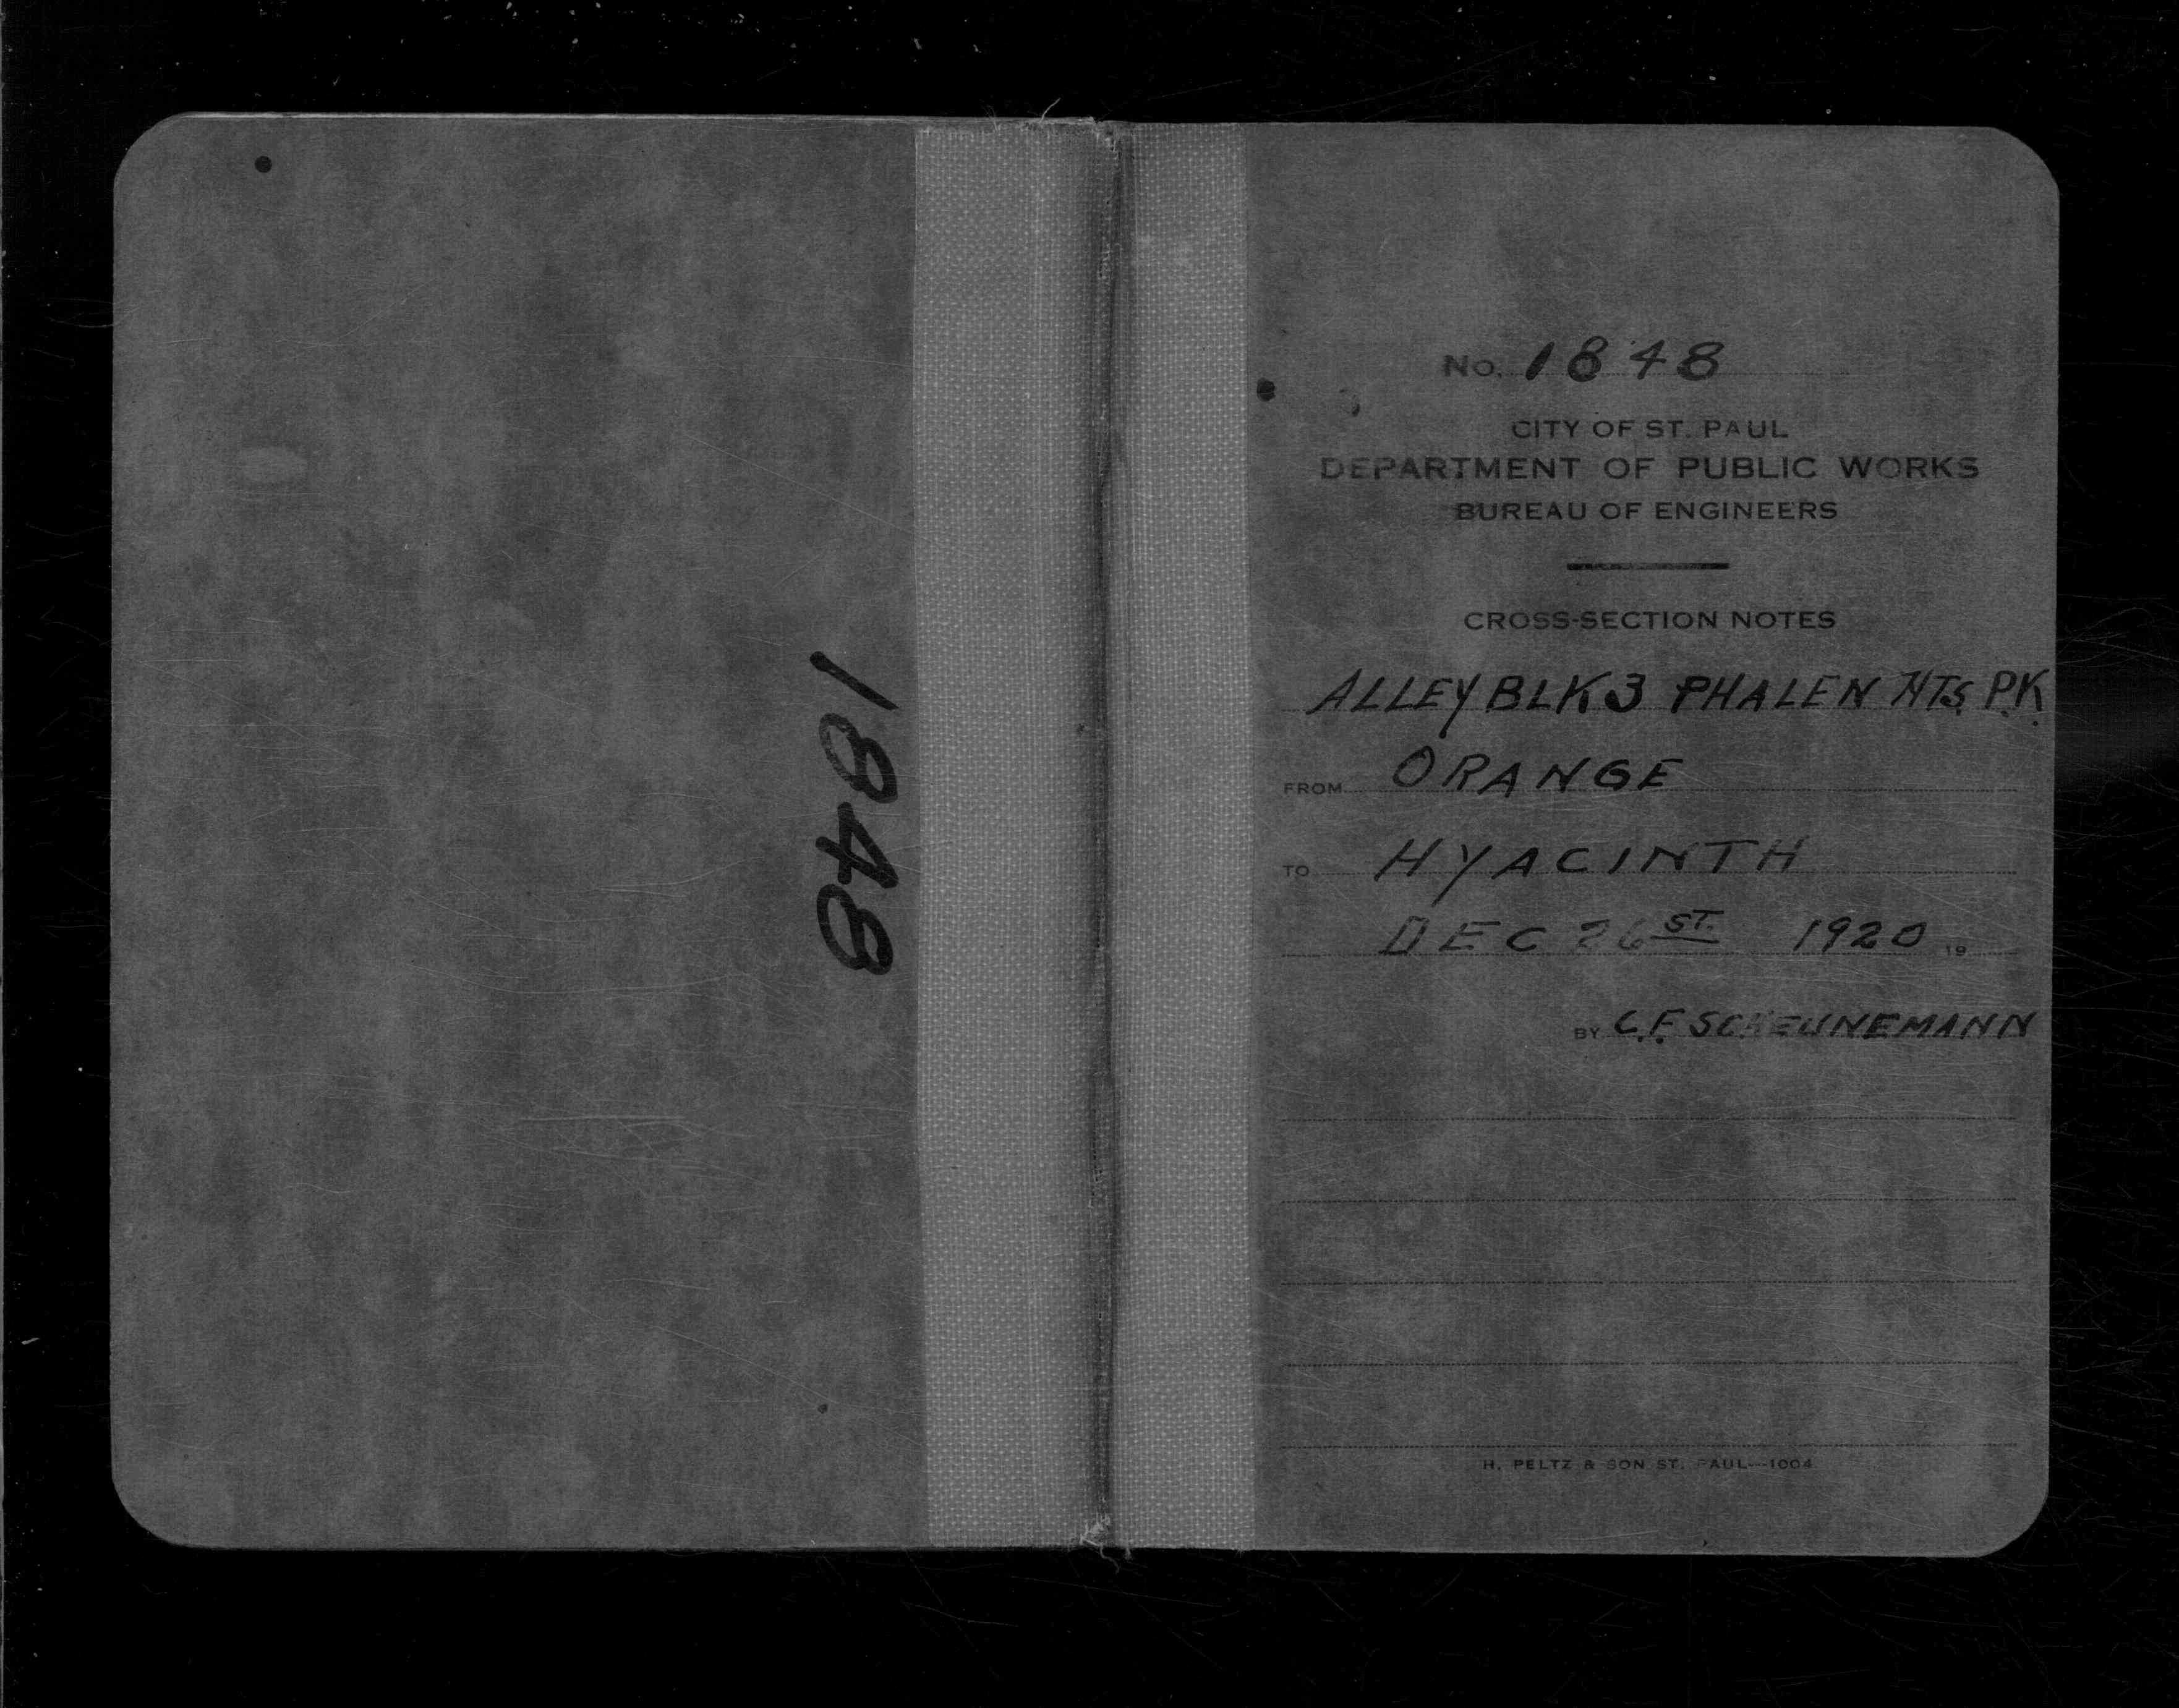 1848
No. 1848
CITY OF ST. PAUL
DEPARTMENT OF PUBLIC WORKS
BUREAU OF ENGINEERS
CROSS-SECTION NOTES
ALLEY BLK 3 PHALEN HTS. P.K.
FROM ORANGE
TO HYACINTH
DEC 26 ST. 1920 19
BY C.F. SCHEUNEMANN
H. PELTZ & SON ST. PAUL---1004